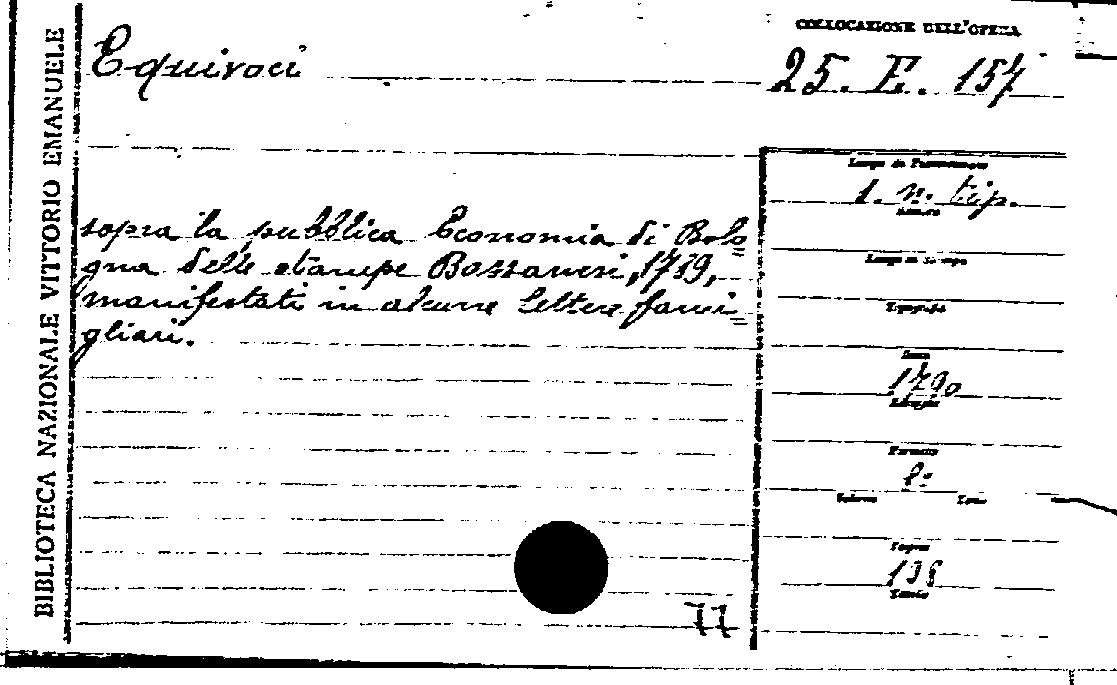 BIBLIOTECA NAZIONALE VITTORIO EMANUELE
COLLOCAZIONE DELL'OPERA
Equivoci
25. E. 157
sopra la pubblica Economia di Bolo=
gna delle stampe Bassanesi, 1789,
manifestati in alcune lettere fami=
gliari.
s. n. tip.
Numero
Luogo di stampa
Tipografo
Data
1790
Formato
8°
Volume Tomo
Pagine
138
Tavole
77